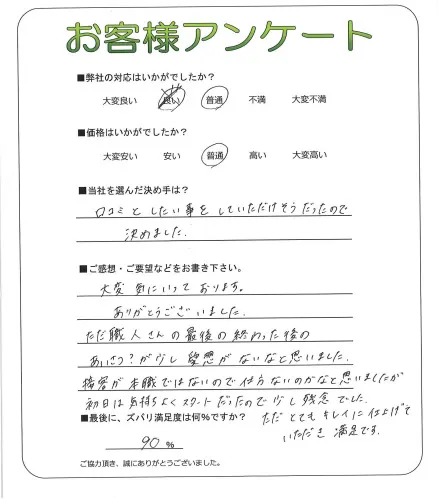 お客様アンケート
■弊社の対応はいかがでしたか?
大変良い 良い 普通 不満 大変不満
■価格はいかがでしたか?
大変安い 安い 普通 高い 大変高い
■当社を選んだ決め手は?
口コミと したい事を していただけそうだったので
決めました.
■ご感想・ご要望などをお書き下さい。
大変 気にいって おります。
ありがとうございました.
ただ 職人さんの 最後の 終わった後の
あいさつ?が少し 愛想がないなと思いました.
接客が 本職ではないので仕方ないのかなと思いましたが
初日は気持ちよくスタートだったので少し残念でした.
■最後に、ズバリ満足度は何%ですか?
ただ とても キレイに仕上げて
いただき 満足です.
90 %
ご協力頂き、誠にありがとうございました。